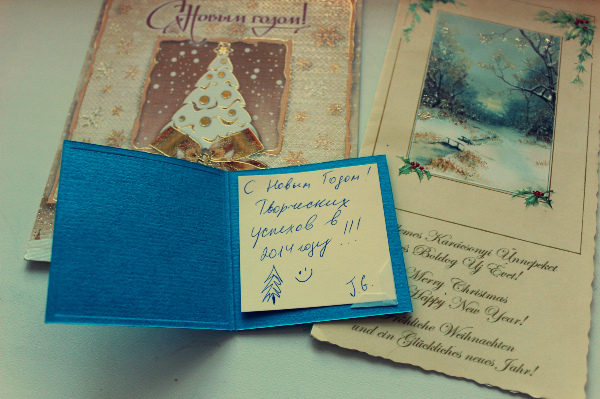 С Новым годом!
С Новым Годом!
Творческих
успехов в
2014 году...!!!
Karácsonyi Ünnepeket
és Boldog Új Évet!
Merry Christmas
Happy New Year!
Fröhliche Weihnachten
und ein Glückliches neues Jahr!